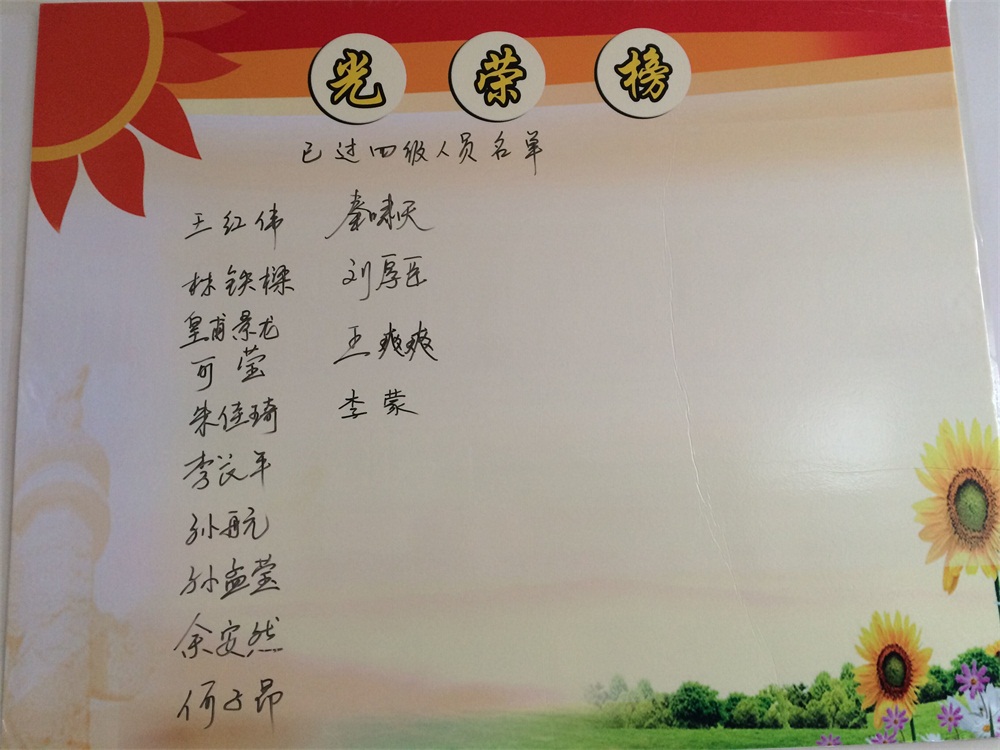 光荣榜
已过四级人员名单
王红伟
林铁樑
皇甫景龙
可莹
朱佳琦
李长年
孙航
孙孟莹
余安然
何子昂
秦啸天
刘厚臣
王爽爽
李蒙